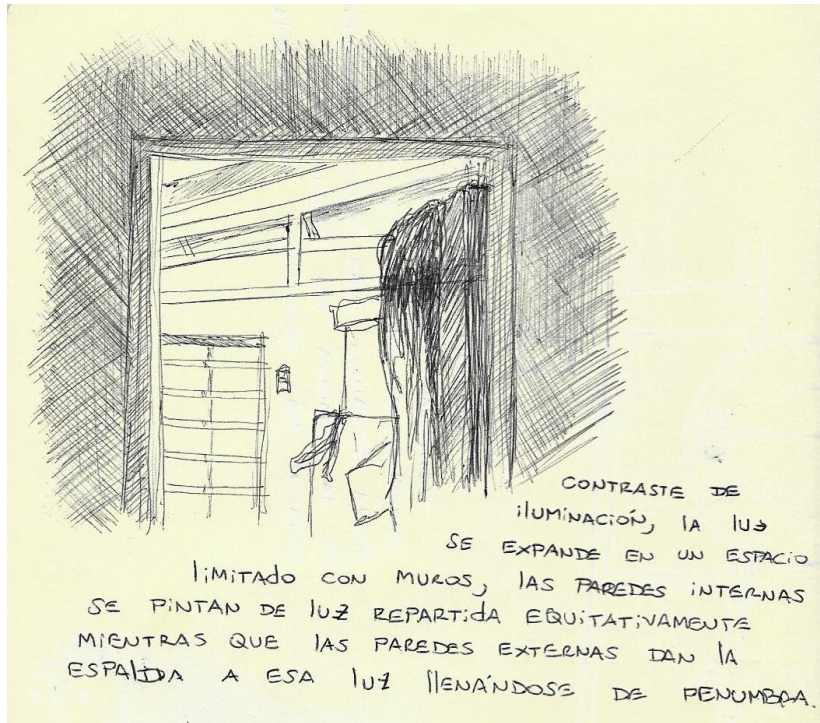 CONTRASTE DE
ILUMINACIÓN, LA LUZ
SE EXPANDE EN UN ESPACIO
LIMITADO CON MUROS, LAS PAREDES INTERNAS
SE PINTAN DE LUZ REPARTIDA EQUITATIVAMENTE
MIENTRAS QUE LAS PAREDES EXTERNAS DAN LA
ESPALDA A ESA LUZ LLENÁNDOSE DE PENUMBRA.